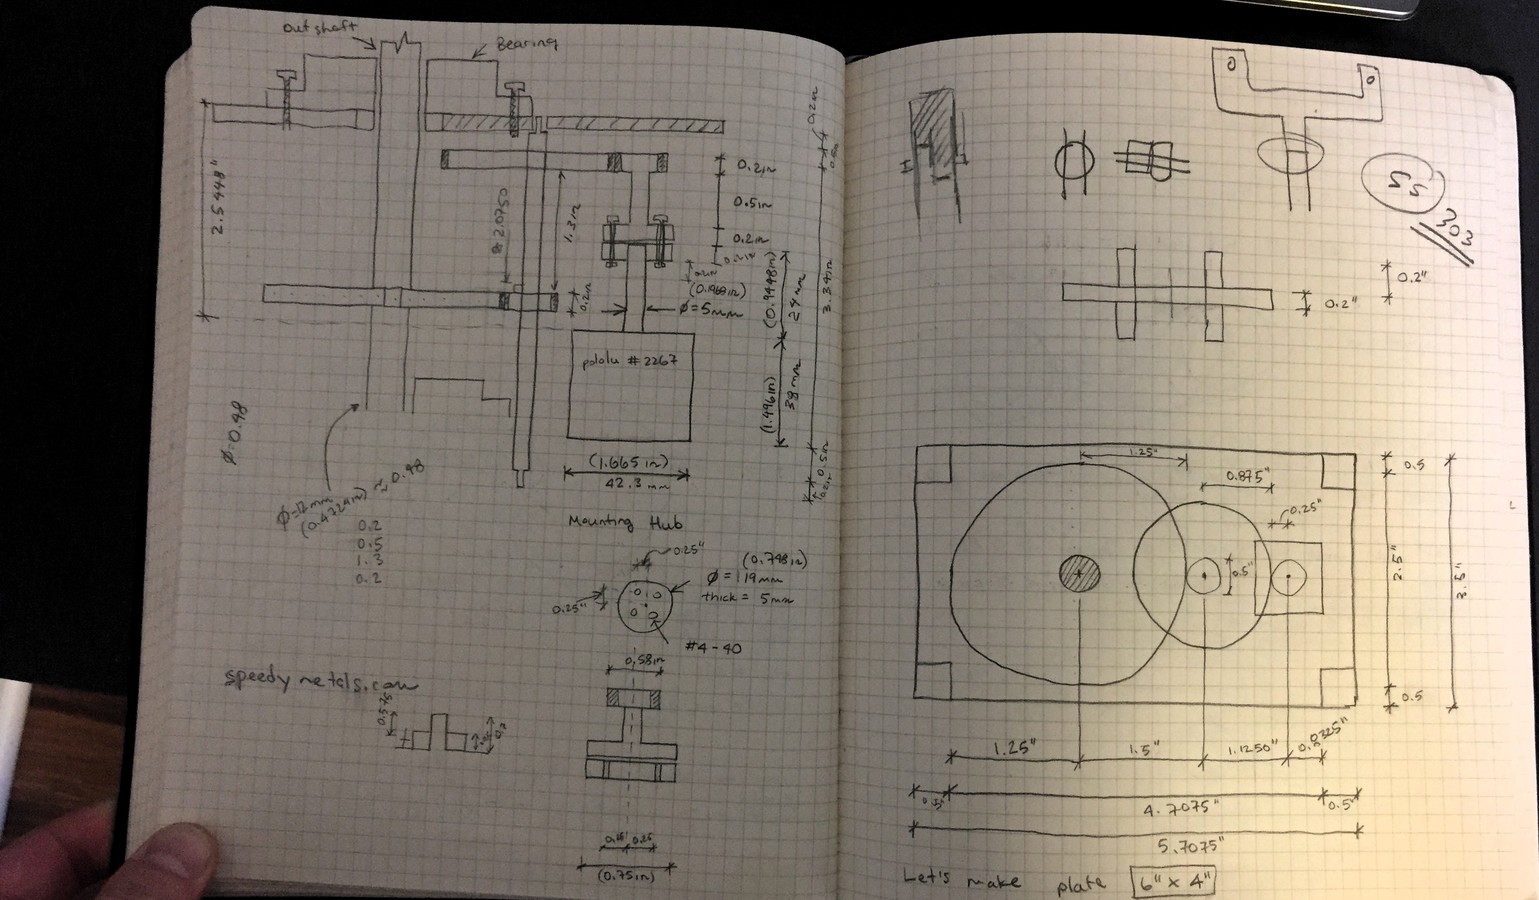 out shaft
Bearing
2.5448"
0.2in
0.5in
0.2in
1.3in
0.2in
(0.1968in)
Ø=5mm
pololu #2267
(0.9448in)
24mm
3.34in
(1.496in)
38mm
0.2in
0.5in
(1.665in)
42.3mm
Ø=0.48
Ø=12mm
(0.4724in) ≈ 0.48
0.2
0.5
1.3
0.2
Mounting Hub
0.25"
(0.748in)
Ø=19mm
thick = 5mm
0.25"
#4-40
0.58in
speedy metals.com
0.575
0.25
(0.75in)
0.2"
0.2"
1.25"
0.5
0.875"
0.25"
0.5"
2.5"
3.5"
0.5
1.25"
1.5"
1.1250"
0.8325"
0.5"
4.7075"
0.5"
5.7075"
Let's make plate 6" x 4"